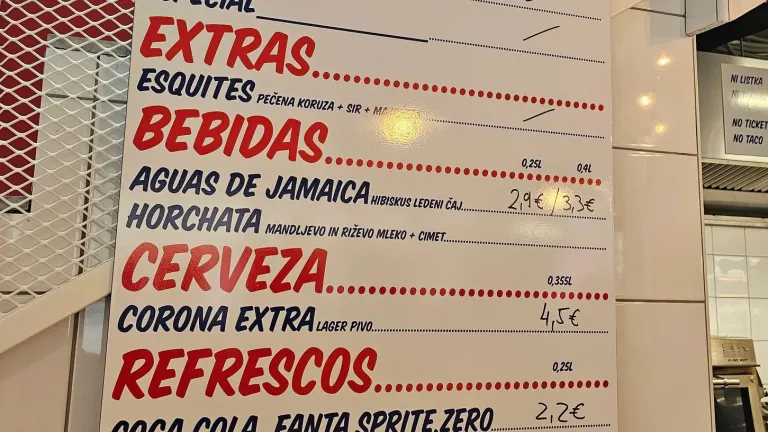 EXTRAS
ESQUITES PEČENA KORUZA + SIR +
BEBIDAS 0,25L 0,4L
AGUAS DE JAMAICA HIBISKUS LEDENI ČAJ 2,9€ / 3,3€
HORCHATA MANDLJEVO IN RIŽEVO MLEKO + CIMET
CERVEZA 0,355L
CORONA EXTRA LAGER PIVO 4,5€
REFRESCOS 0,25L
COCA COLA, FANTA SPRITE, ZERO 2,2€
NI LISTKA
NO TICKET
NO TACO